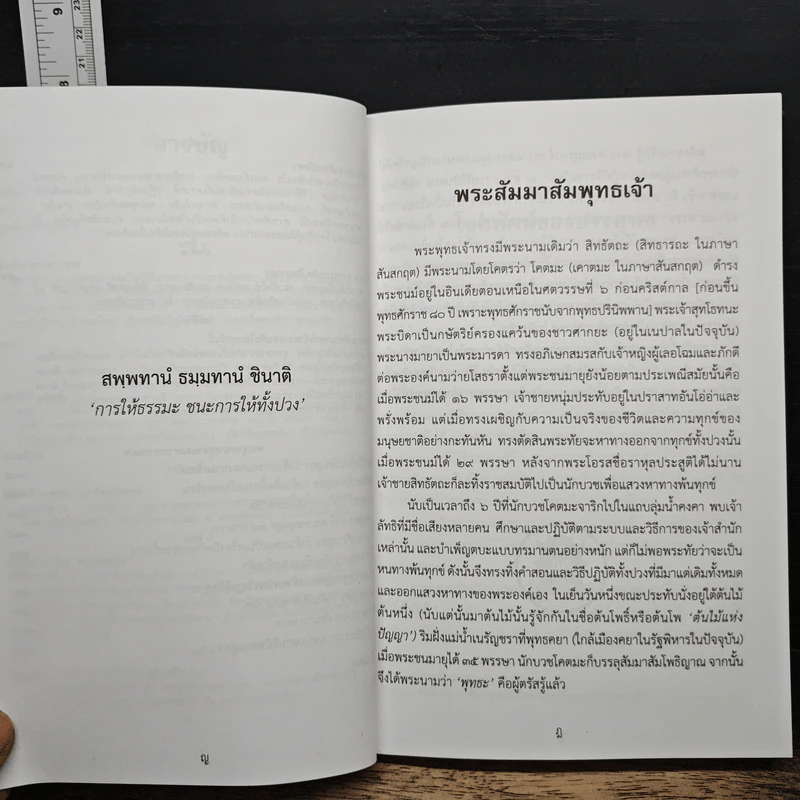 9
23
22
21
8
สพฺพทานํ ธมฺมทานํ ชินาติ
‘การให้ธรรมะ ชนะการให้ทั้งปวง’
ญ
พระสัมมาสัมพุทธเจ้า
พระพุทธเจ้าทรงมีพระนามเดิมว่า สิทธัตถะ (สิทธารถะ ในภาษา
สันสกฤต) มีพระนามโดยโคตรว่า โคตมะ (เคาตมะ ในภาษาสันสกฤต) ดำรง
พระชนม์อยู่ในอินเดียตอนเหนือในศตวรรษที่ ๖ ก่อนคริสต์กาล [ก่อนขึ้น
พุทธศักราช ๘๐ ปี เพราะพุทธศักราชนับจากพุทธปรินิพพาน] พระเจ้าสุทโธทนะ
พระบิดาเป็นกษัตริย์ครองแคว้นของชาวศากยะ (อยู่ในเนปาลในปัจจุบัน)
พระนางมายาเป็นพระมารดา ทรงอภิเษกสมรสกับเจ้าหญิงผู้เลอโฉมและภักดี
ต่อพระองค์นามว่ายโสธราตั้งแต่พระชนมายุยังน้อยตามประเพณีสมัยนั้นคือ
เมื่อพระชนม์ได้ ๑๖ พรรษา เจ้าชายหนุ่มประทับอยู่ในปราสาทอันโอ่อ่าและ
พรั่งพร้อม แต่เมื่อทรงเผชิญกับความเป็นจริงของชีวิตและความทุกข์ของ
มนุษยชาติอย่างกะทันหัน ทรงตัดสินพระทัยจะหาทางออกจากทุกข์ทั้งปวงนั้น
เมื่อพระชนม์ได้ ๒๙ พรรษา หลังจากพระโอรสชื่อราหุลประสูติได้ไม่นาน
เจ้าชายสิทธัตถะก็ละทิ้งราชสมบัติไปเป็นนักบวชเพื่อแสวงหาทางพ้นทุกข์
นับเป็นเวลาถึง ๖ ปีที่นักบวชโคตมะจาริกไปในแถบลุ่มน้ำคงคา พบเจ้า
ลัทธิที่มีชื่อเสียงหลายคน ศึกษาและปฏิบัติตามระบบและวิธีการของเจ้าสำนัก
เหล่านั้น และบำเพ็ญตบะแบบทรมานตนอย่างหนัก แต่ก็ไม่พอพระทัยว่าจะเป็น
หนทางพ้นทุกข์ ดังนั้นจึงทรงทิ้งคำสอนและวิธีปฏิบัติทั้งปวงที่มีมาแต่เดิมทั้งหมด
และออกแสวงหาทางของพระองค์เอง ในเย็นวันหนึ่งขณะประทับนั่งอยู่ใต้ต้นไม้
ต้นหนึ่ง (นับแต่นั้นมาต้นไม้นั้นรู้จักกันในชื่อต้นโพธิ์หรือต้นโพ ‘ต้นไม้แห่ง
ปัญญา’) ริมฝั่งแม่น้ำเนรัญชราที่พุทธคยา (ใกล้เมืองคยาในรัฐพิหารในปัจจุบัน)
เมื่อพระชนมายุได้ ๓๕ พรรษา นักบวชโคตมะก็บรรลุสัมมาสัมโพธิญาณ จากนั้น
จึงได้พระนามว่า ‘พุทธะ’ คือผู้ตรัสรู้แล้ว
ฎ